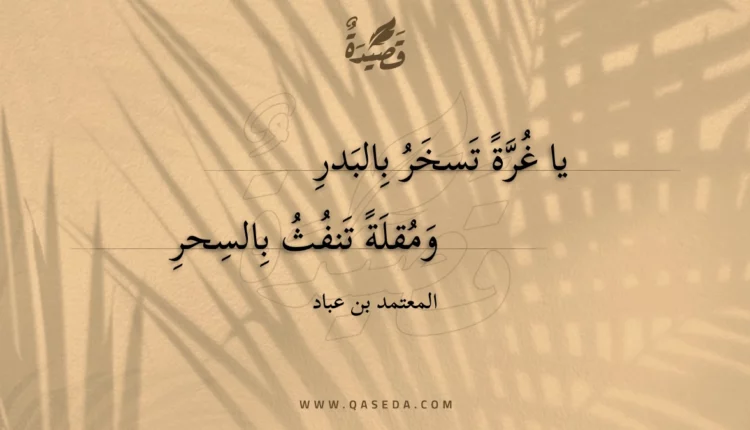 قَصِيدَةٌ
يا غُرَّةً تَسخَرُ بِالبَدرِ
وَمُقلَةً تَنفُثُ بِالسِحرِ
المعتمد بن عباد
WWW.QASEDA.COM